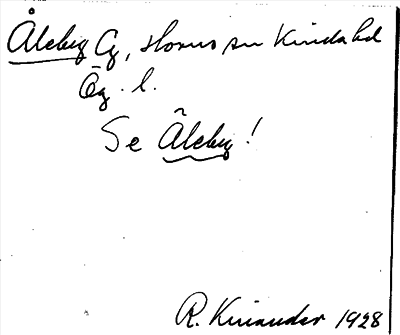 Åleby Cg, Horns sn Kinda hd
Ög. l.
Se Äleby!
R. Kinander 1928